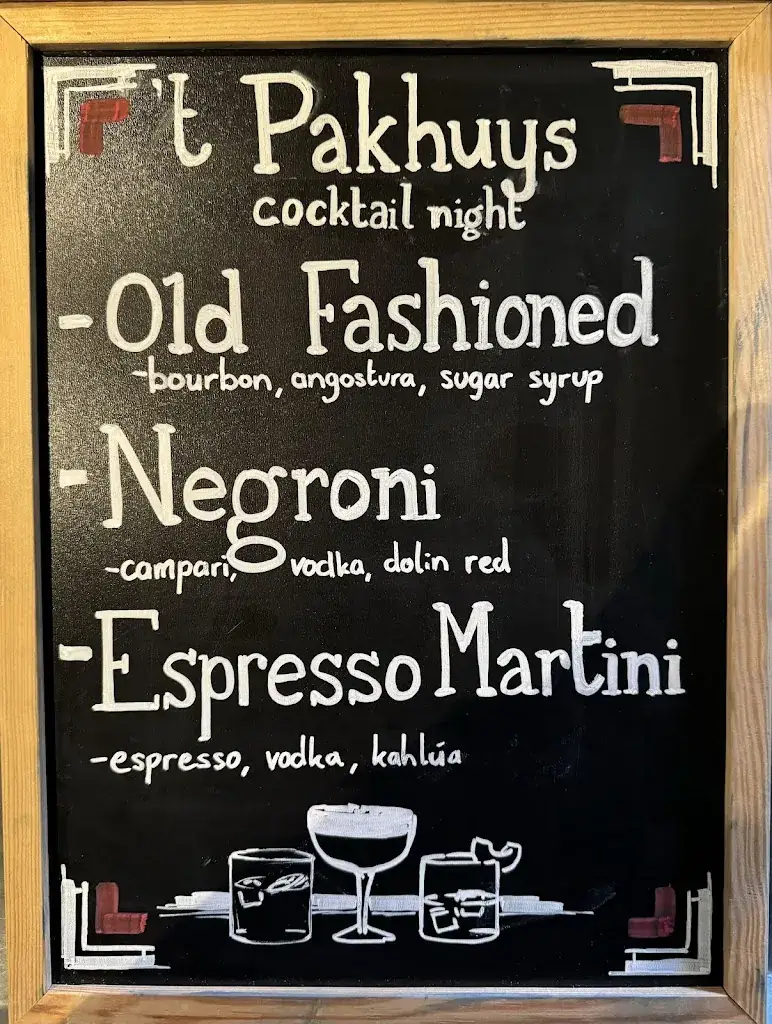 't Pakhuys
cocktail night
- Old Fashioned
- bourbon, angostura, sugar syrup
- Negroni
- campari, vodka, dolin red
- Espresso Martini
- espresso, vodka, kahlúa